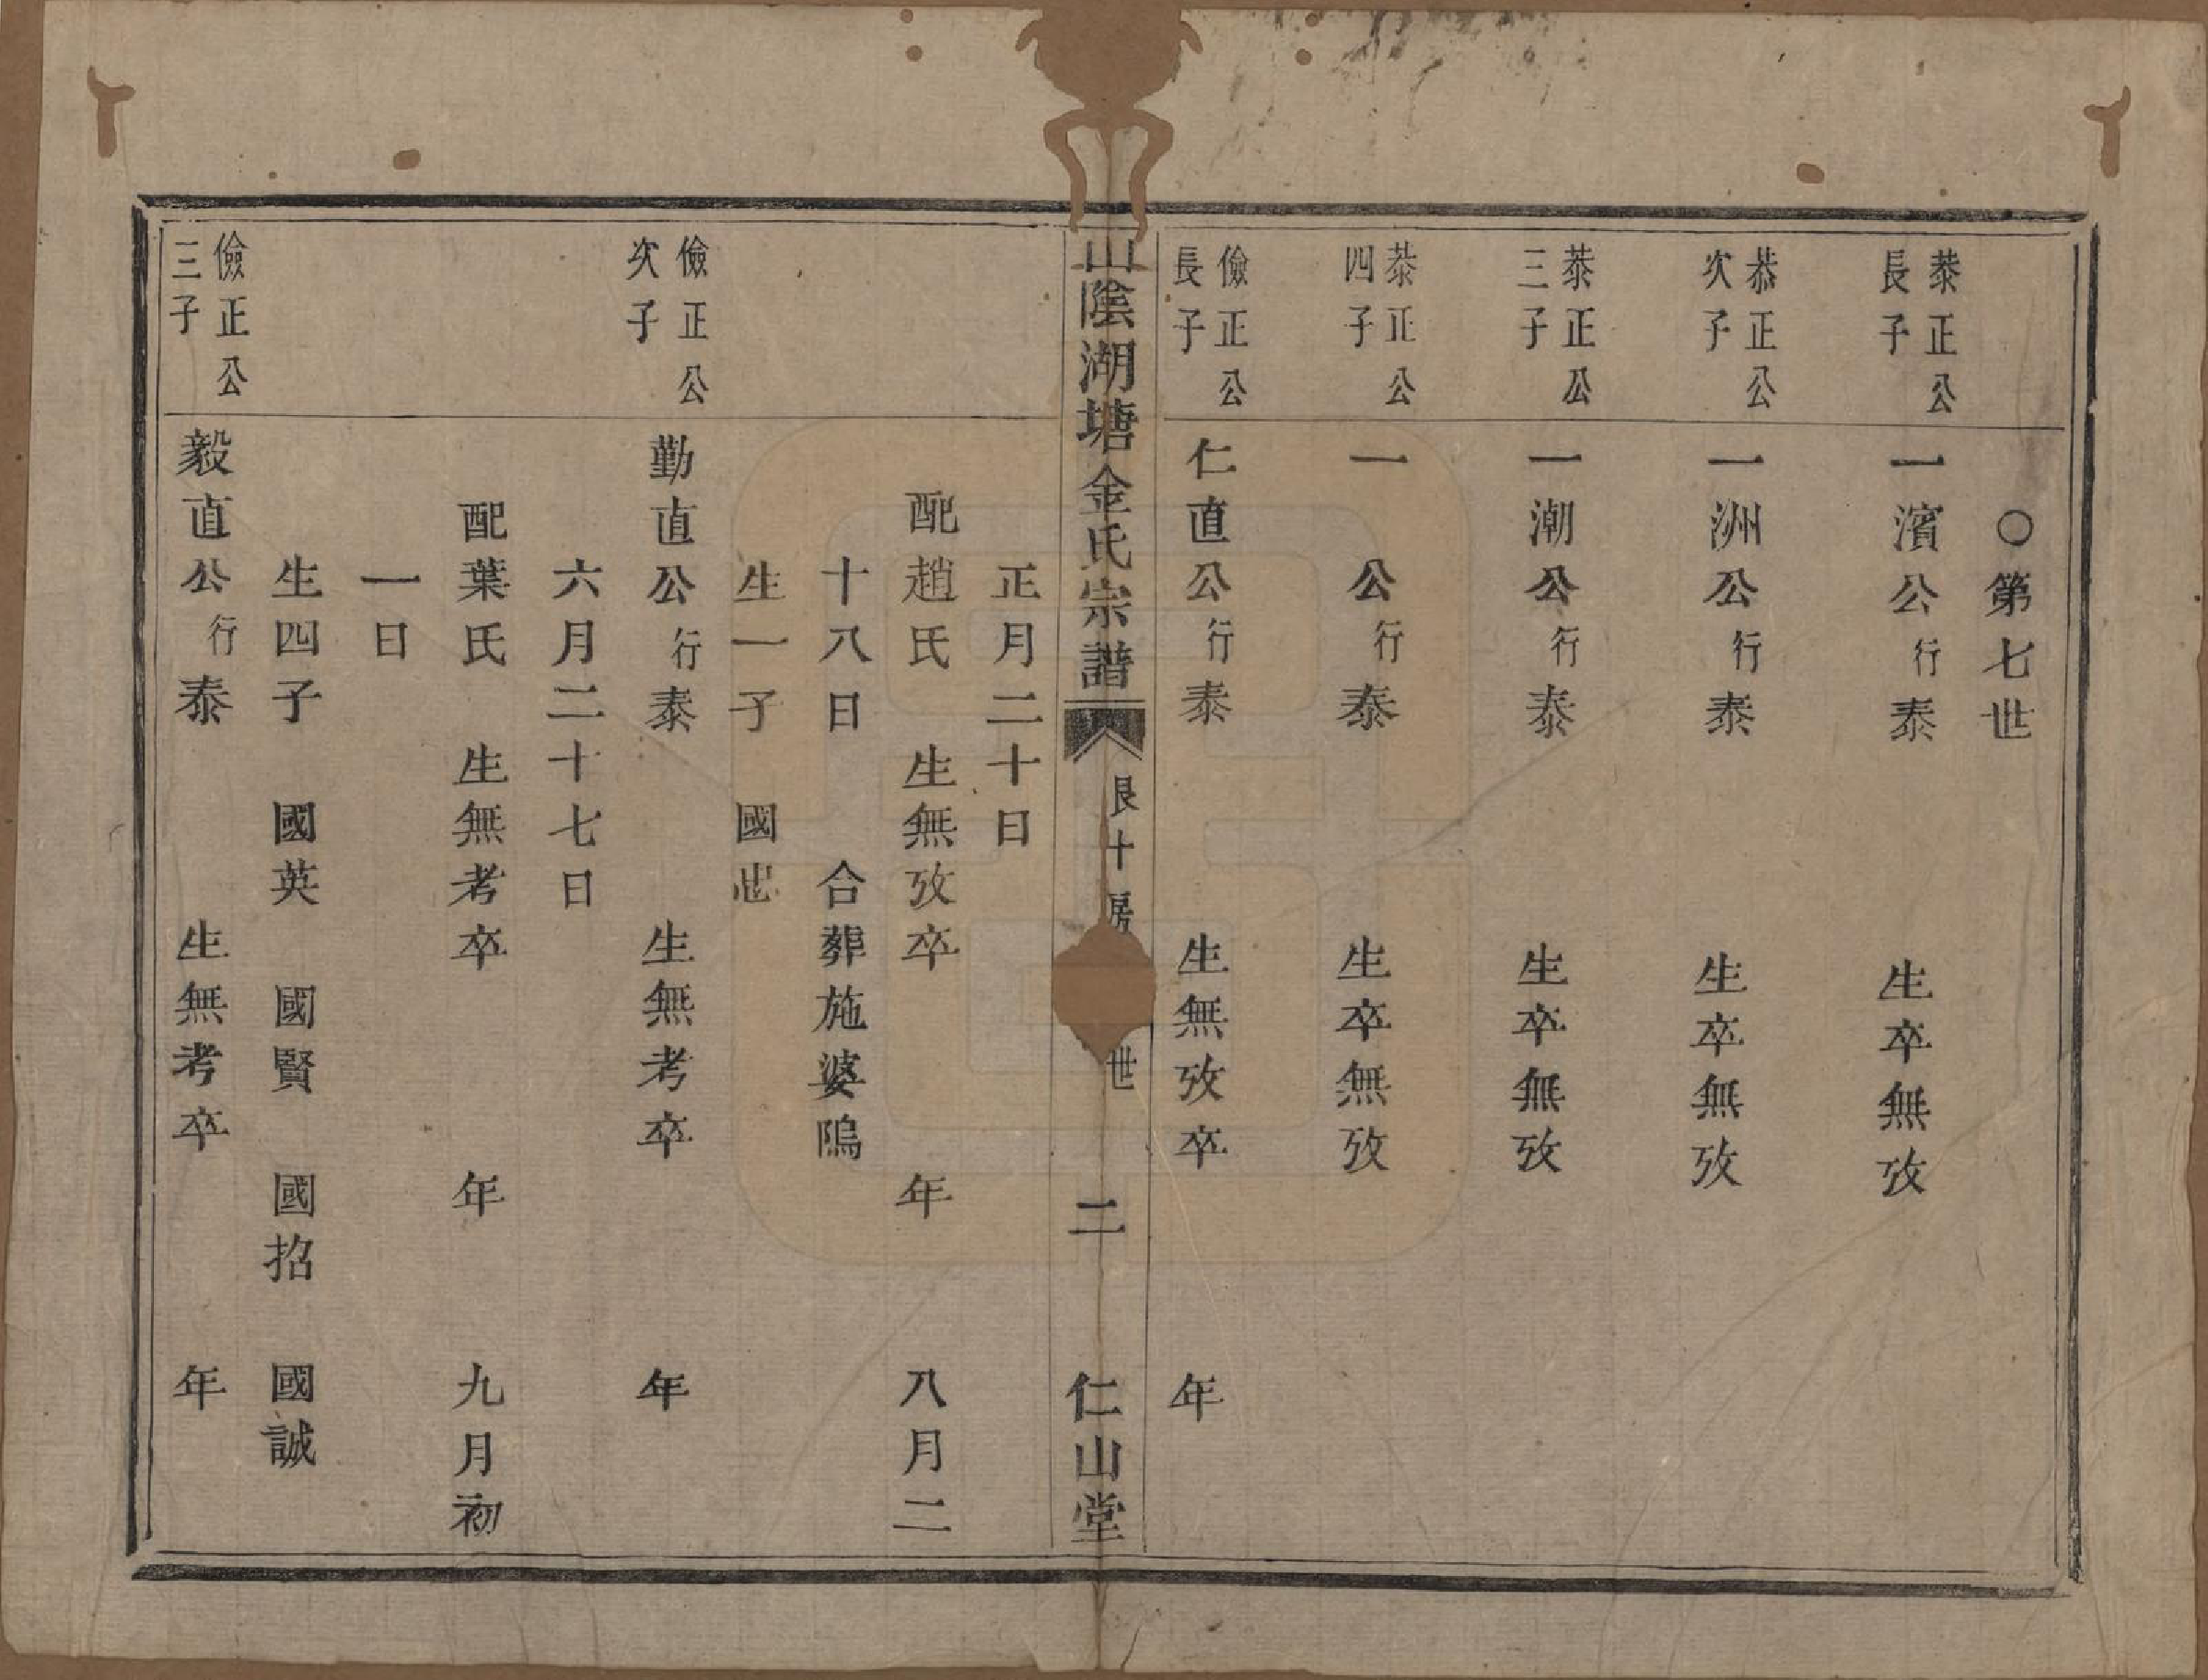 ○第七世
恭正公
長子
一濱公行泰　生卒無攷
恭正公
次子
一洲公行泰　生卒無攷
恭正公
三子
一潮公行泰　生卒無攷
恭正公
四子
一　公行泰　生卒無攷
儉正公
長子
仁直公行泰　生無攷卒　年
山陰湖塘金氏宗譜　良十房　世　二　仁山堂
正月二十日
配趙氏　生無攷卒　年　八月二
十八日　合葬施婆隝
生一子　國忠
儉正公
次子
勤直公行泰　生無考卒　年
六月二十七日
配葉氏　生無考卒　年　九月初
一日
生四子　國英　國賢　國招　國誠
儉正公
三子
毅直公行泰　生無考卒　年